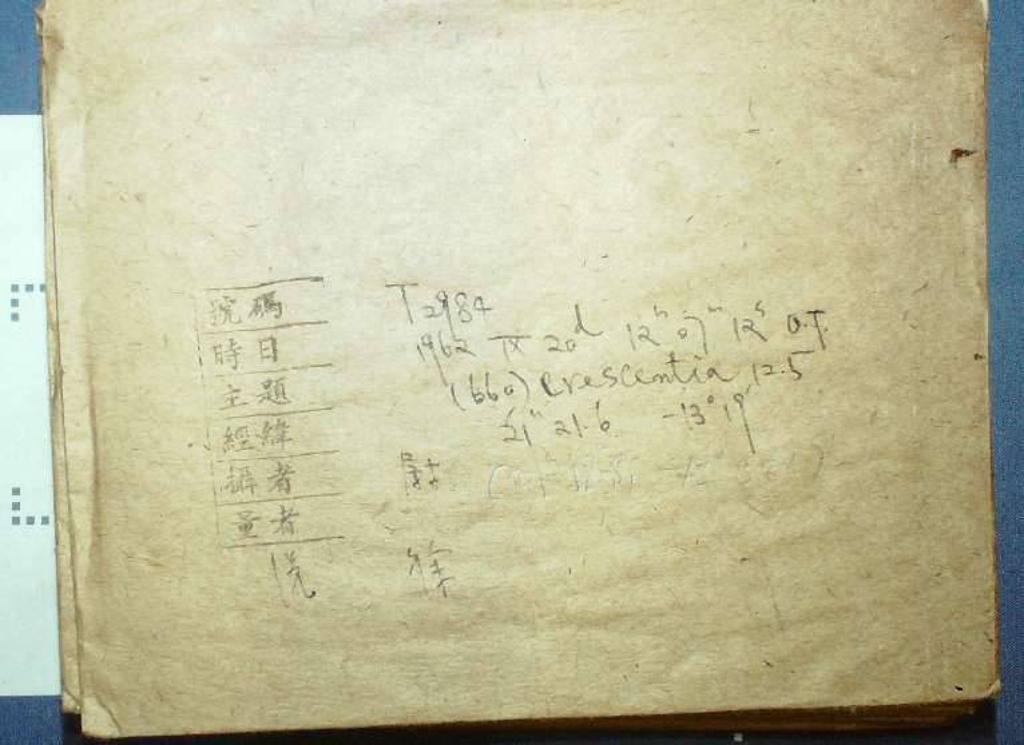 號碼 T2984
時日 1962 IX 20d 12h 07m 12s U.T.
主題 (660) Crescentia 12.5
經緯 21h 21.6 -13°19'
攝者
量者
洗 徐